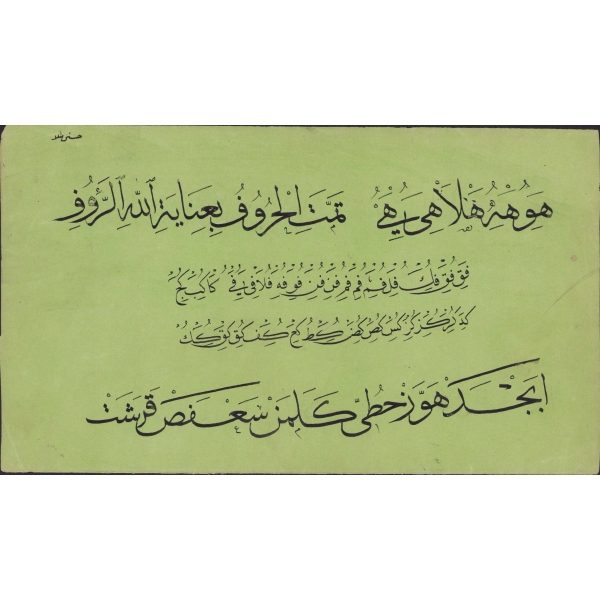 هو هه هلا هى يهي تمت الحروف بعناية الله الرؤوف
فق فق فك فل فم فم فم فن فن فو فه فلا فى في كا كب كج
كد كر كز كر كس كص كض كط كع كف كق كق كك
ابجد هوز حطي كلمن سعفص قرشت